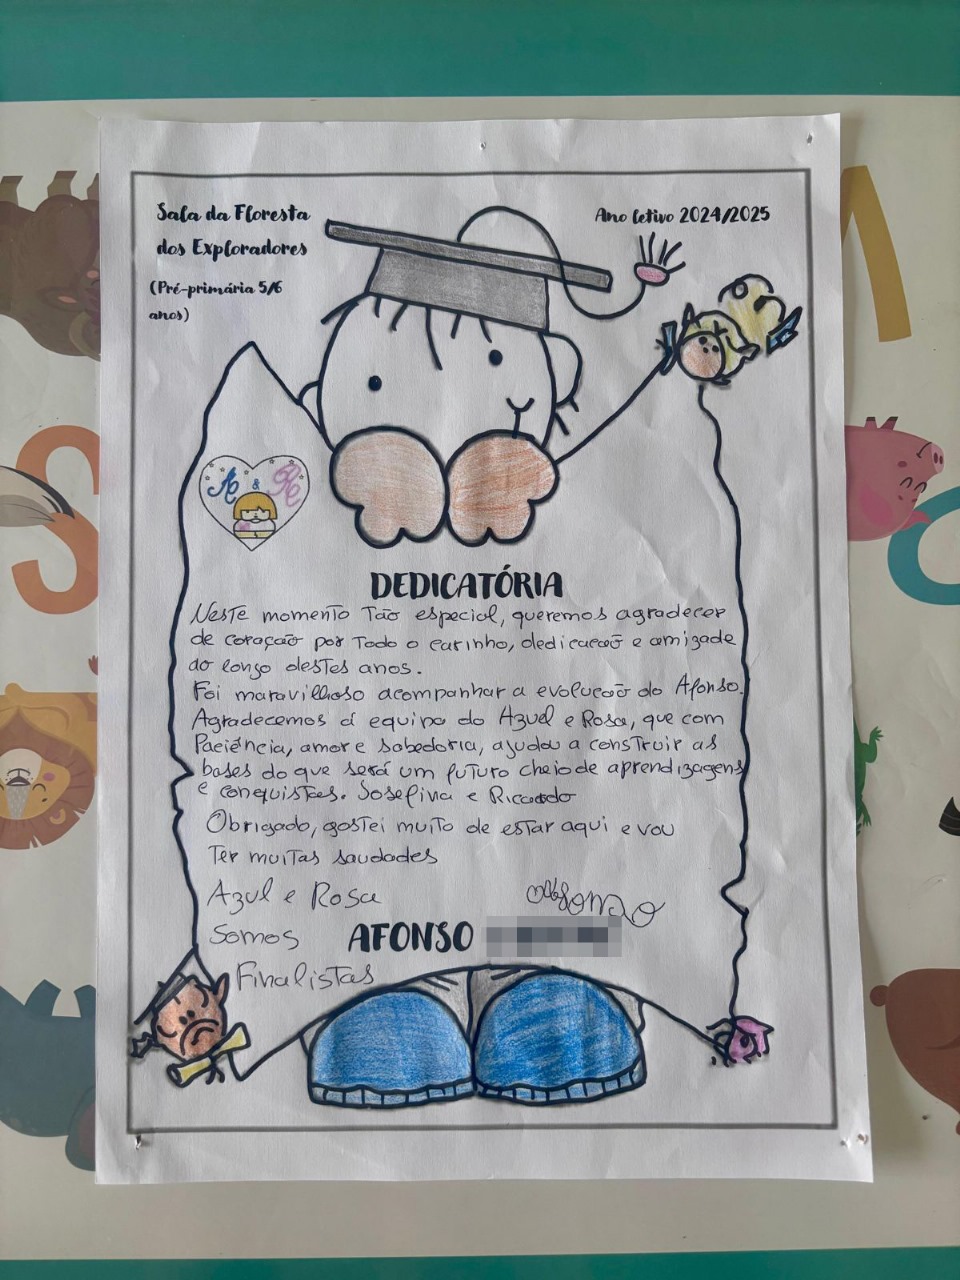 Sala da Floresta
dos Exploradores
(Pré-primária 5/6
anos)
Ano letivo 2024/2025
A & R
DEDICATÓRIA
Neste momento tão especial, queremos agradecer
de coração por todo o carinho, dedicacão e amizade
ao longo destes anos.
Foi maravilhoso acompanhar a evolucão do Afonso.
Agradecemos á equipa do Azul e Rosa, que com
Paciência, amor e sabedoria, ajudou a construir as
bases do que será um futuro cheio de aprendizagens
e conquistas. Josefina e Ricardo
Obrigado, gostei muito de estar aqui e vou
ter muitas saudades
Azul e Rosa
Somos
Finalistas
AFONSO